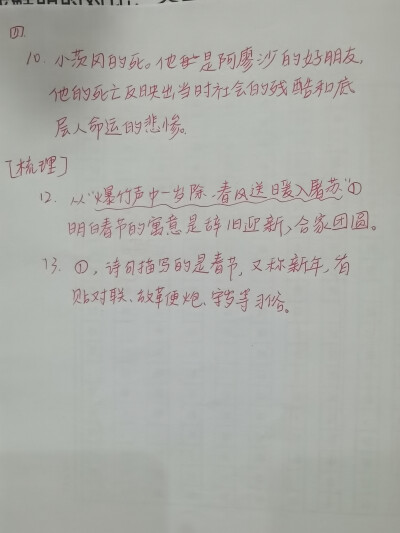 四.
10. 小茨冈的死。他是阿廖沙的好朋友,
他的死亡反映出当时社会的残酷和底
层人命运的悲惨。
[梳理]
12. 从“爆竹声中一岁除,春风送暖入屠苏”①
明白春节的寓意是辞旧迎新,合家团圆。
13. ①,诗句描写的是春节,又称新年,有
贴对联、放革便炮、守岁等习俗。